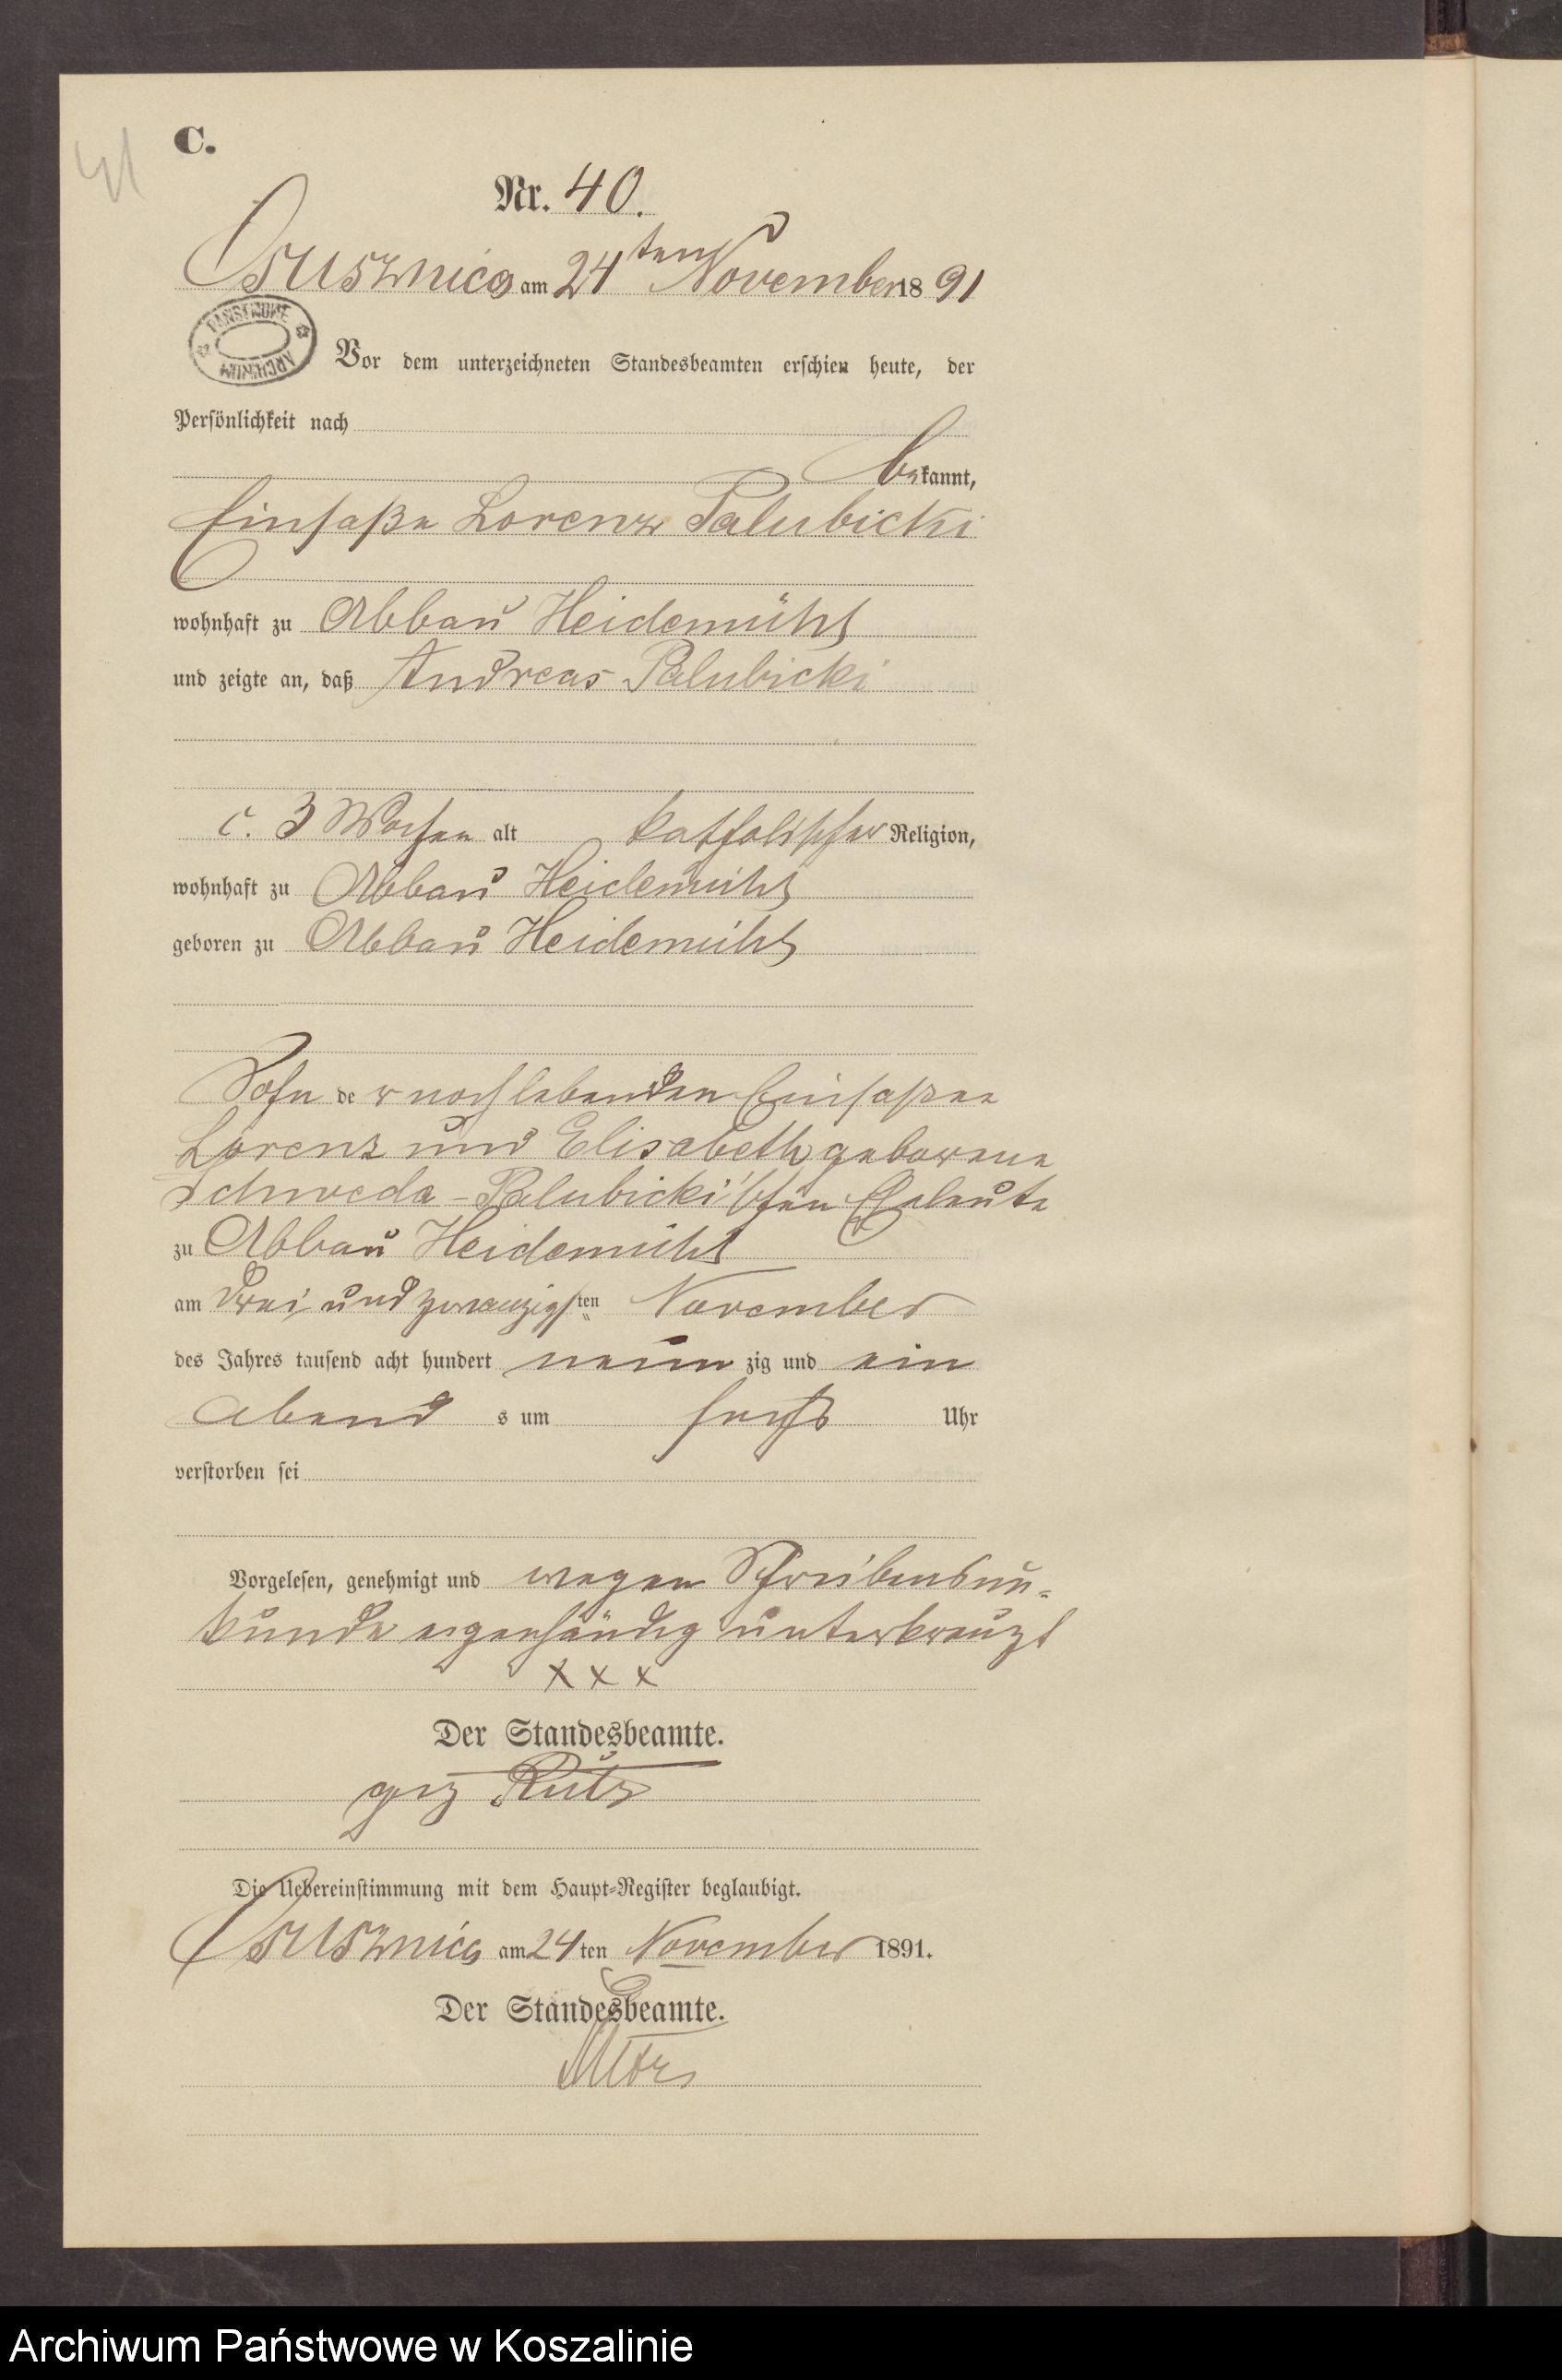 41
C.
Nr. 40.
Osusznica am 24ten November 1891
PAŃSTWOWE ARCHIWUM
Vor dem unterzeichneten Standesbeamten erschien heute, der
Persönlichkeit nach
bekannt,
Einsaße Lorenz Palubicki
wohnhaft zu Abbau Heidemühl
und zeigte an, daß Andreas Palubicki
c. 3 Wochen alt katholischer Religion,
wohnhaft zu Abbau Heidemühl
geboren zu Abbau Heidemühl
Sohn der noch lebenden Einsaßen
Lorenz und Elisabeth geborene
Schweda-Palubicki'schen Eheleute
zu Abbau Heidemühl
am drei und zwanzigsten November
des Jahres tausend acht hundert neunzig und ein
Abends um sechs Uhr
verstorben sei
Vorgelesen, genehmigt und wegen Schreibensun-
kunde eigenhändig unterkreuzt
x x x
Der Standesbeamte.
gez Rutz
Die Uebereinstimmung mit dem Haupt-Register beglaubigt.
Osusznica am 24ten November 1891.
Der Standesbeamte.
Archiwum Państwowe w Koszalinie